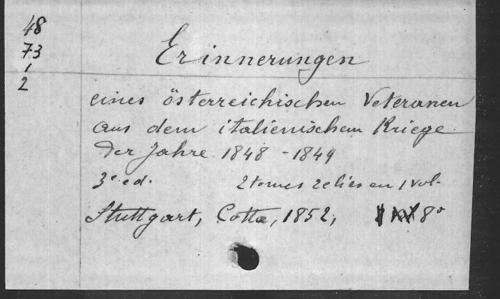 48
73
1
2
Erinnerungen
eines österreichischen Veteranen
aus dem italienischem Kriege
der Jahre 1848 - 1849
3e ed. 2 tomes reliés en 1 vol.
Stuttgart, Cotta, 1852, 8°